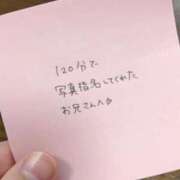 120分で
写真指名してくれた
お兄さんへ